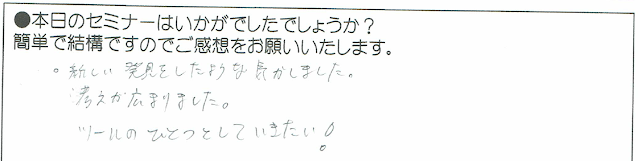 ●本日のセミナーはいかがでしたでしょうか？
簡単で結構ですのでご感想をお願いいたします。
。新しい発見をしたような気がしました。
考えが広まりました。
ツールのひとつとしていきたい！